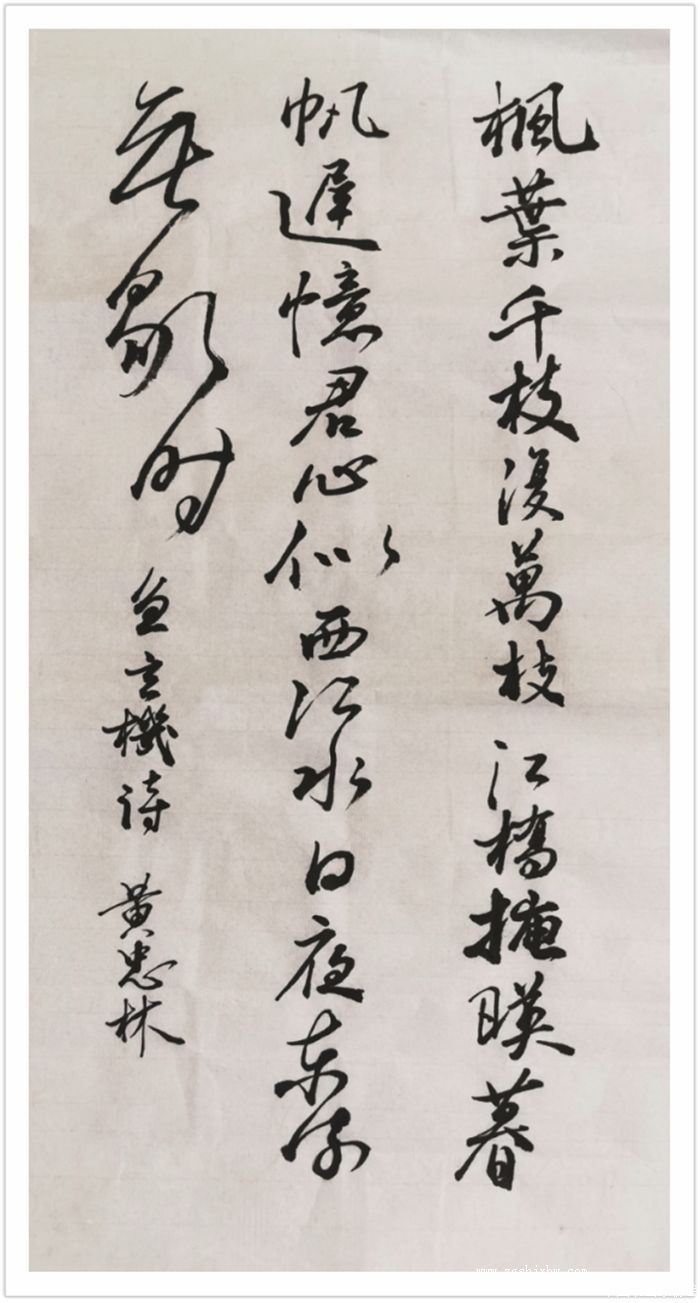 楓葉千枝復萬枝江橋掩暎暮
帆遲憶君心似西江水日夜東流
無歇时 鱼玄機詩 黄忠林